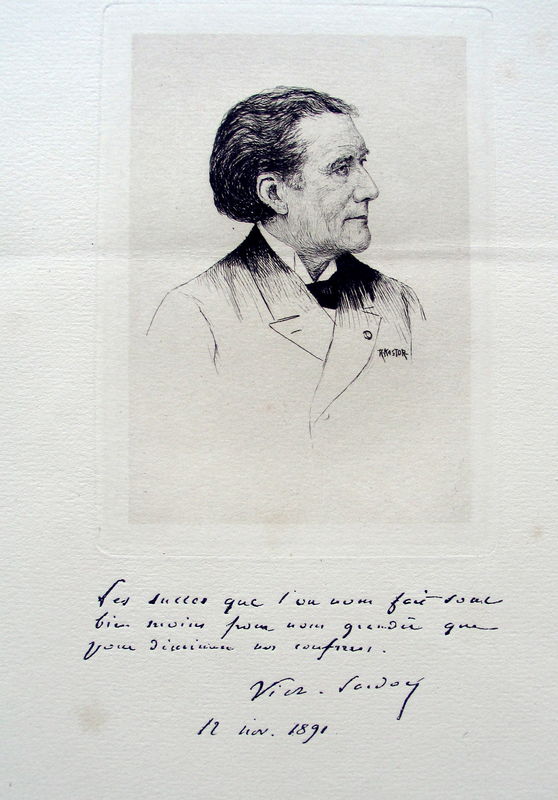 R. KASTOR
Les succès que l'on nous fait sont
bien moins pour nous grandir que
pour diminuer nos confrères.
Vict. Sardou
12 nov. 1891